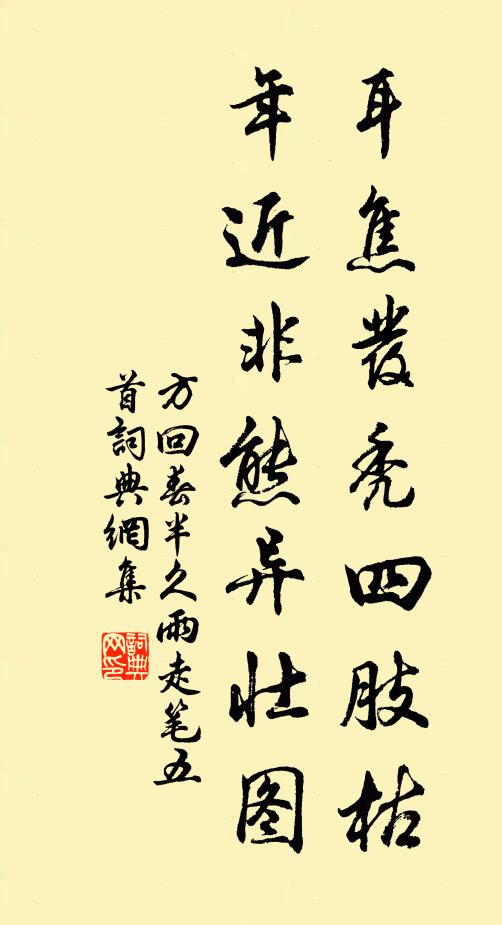 耳焦发秃四肢枯
年近非熊异壮图
方回春半久雨走笔五
首词典网集
詞典
网印